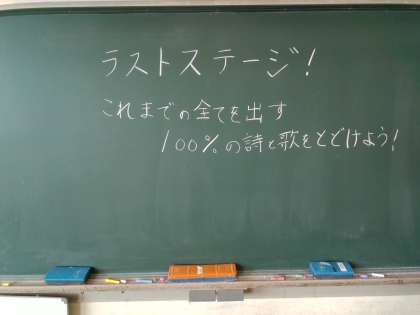 ラストステージ!
これまでの全てを出す
100%の詩と歌をとどけよう!